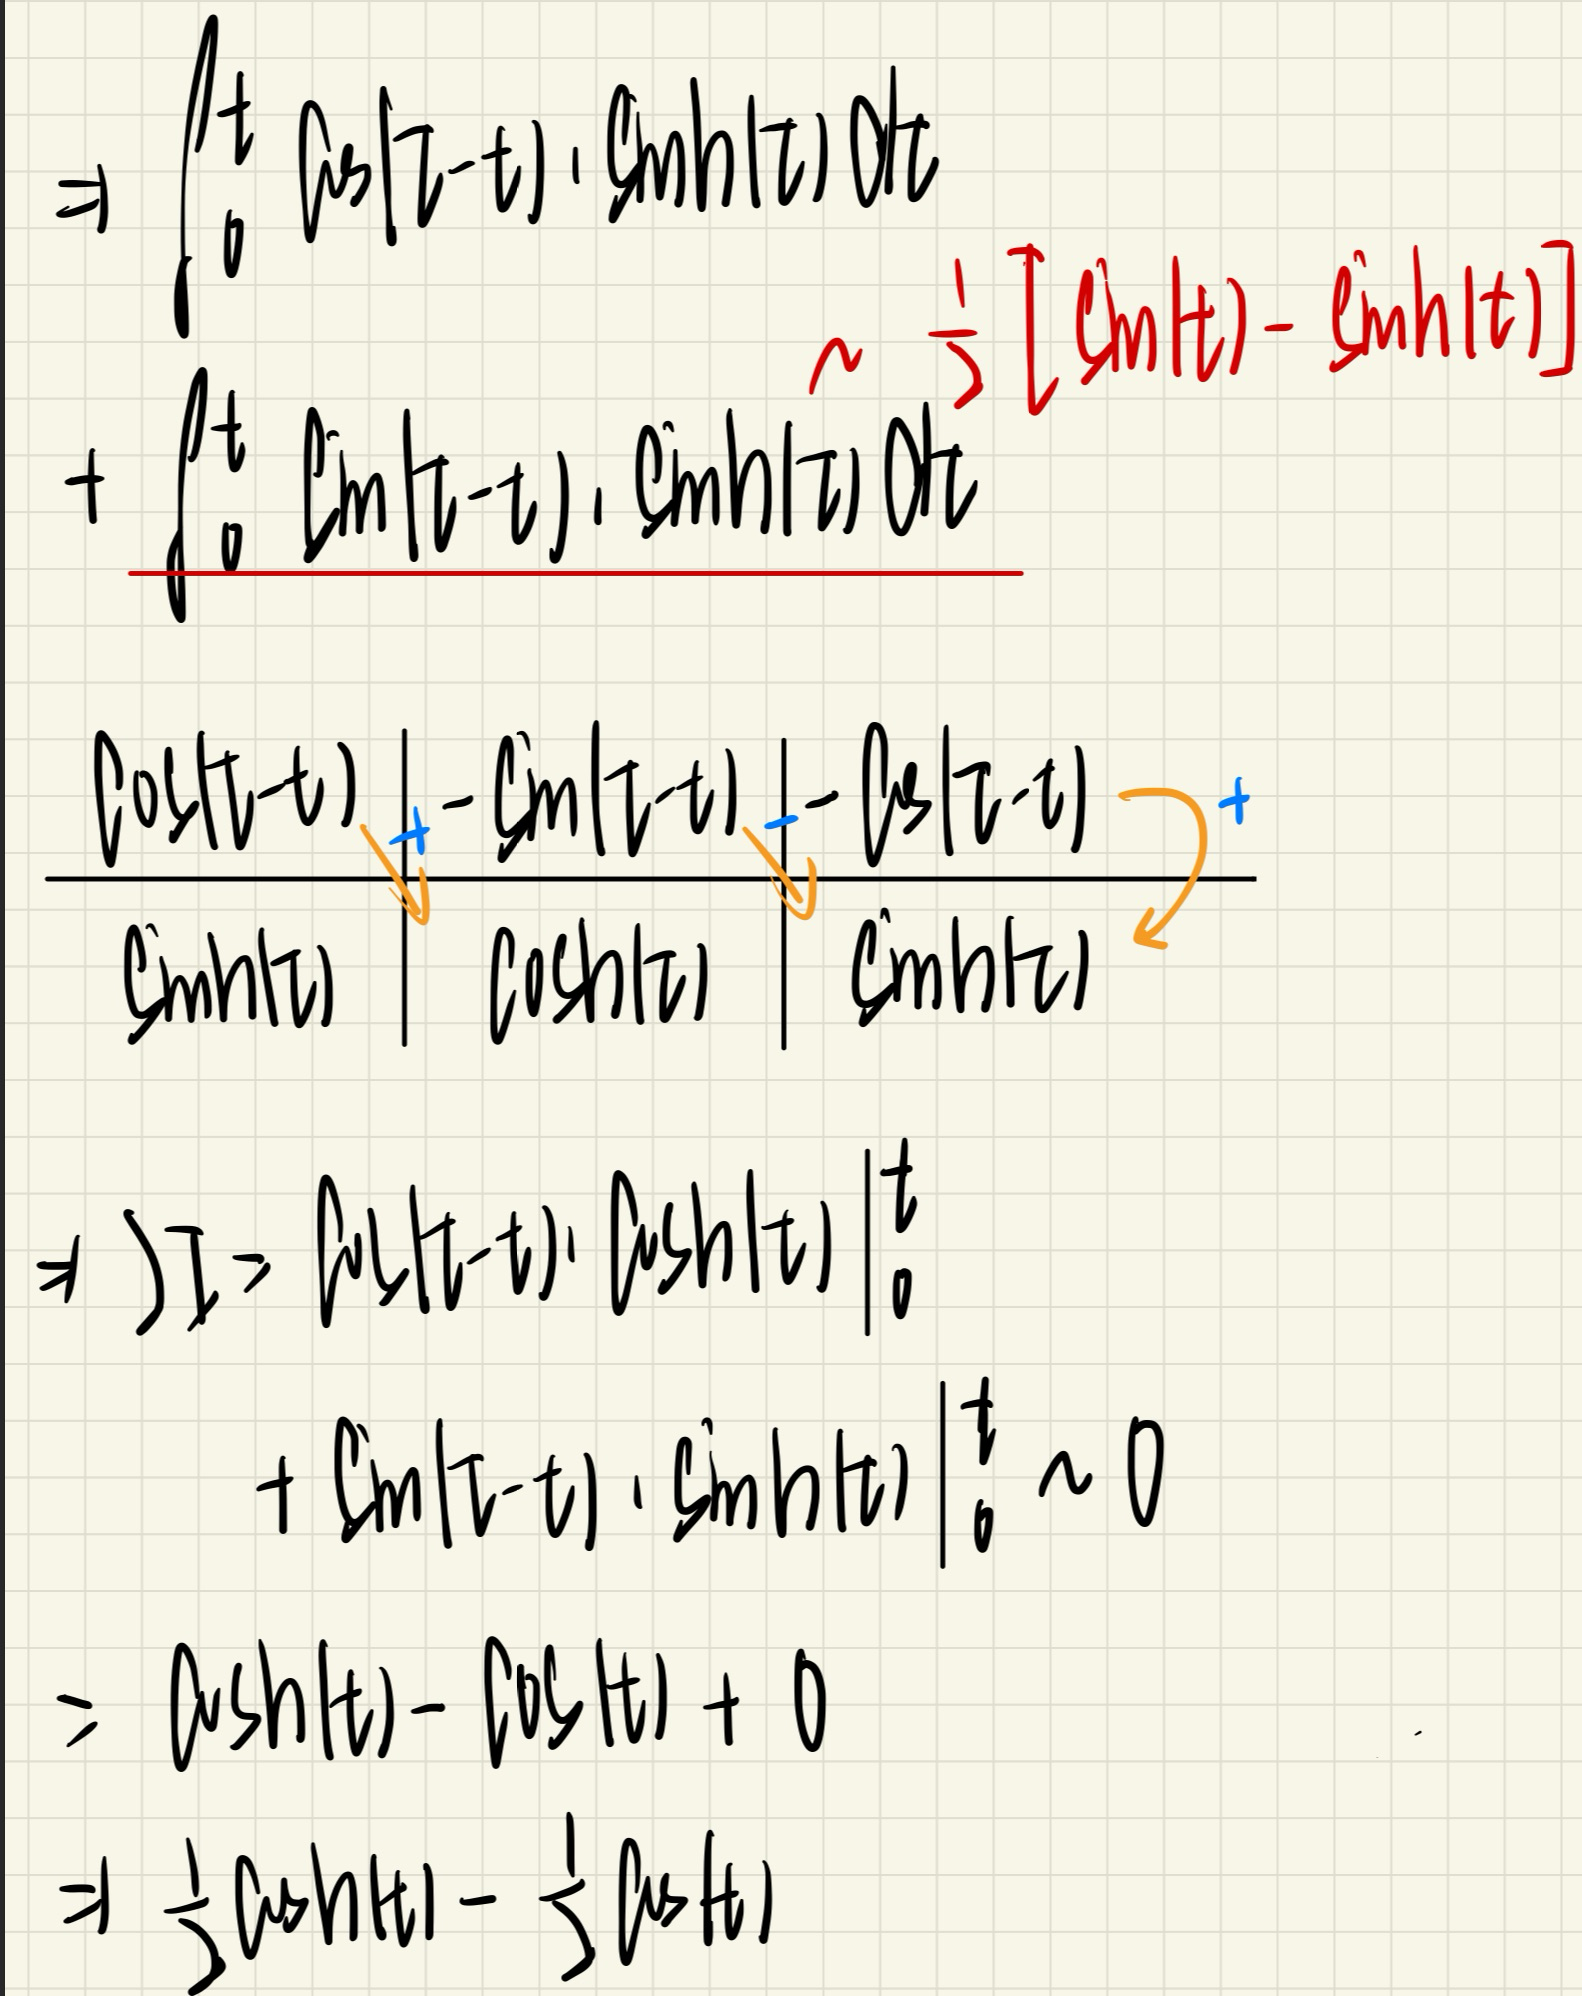 ⇒ ∫₀ᵗ cos(τ-t) · sinh(τ) dτ
~ 1/2 [sin(t) - sinh(t)]
+ ∫₀ᵗ sin(τ-t) · sinh(τ) dτ
cos(τ-t) | + - sin(τ-t) | - - cos(τ-t) +
sinh(τ) | cosh(τ) | sinh(τ)
⇒ 2I = cos(τ-t) · cosh(τ) |₀ᵗ
+ sin(τ-t) · sinh(τ) |₀ᵗ ~ 0
= cosh(t) - cos(t) + 0
⇒ 1/2 cosh(t) - 1/2 cos(t)